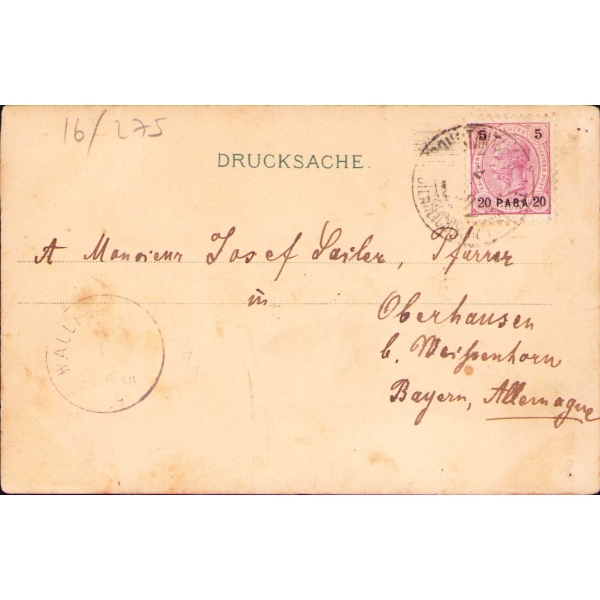 16/275
DRUCKSACHE.
5 5
20 PARA 20
A Monsieur Josef Sailer, Pfarrer
in
Oberhausen
b. Weißenhorn
Bayern, Allemagne